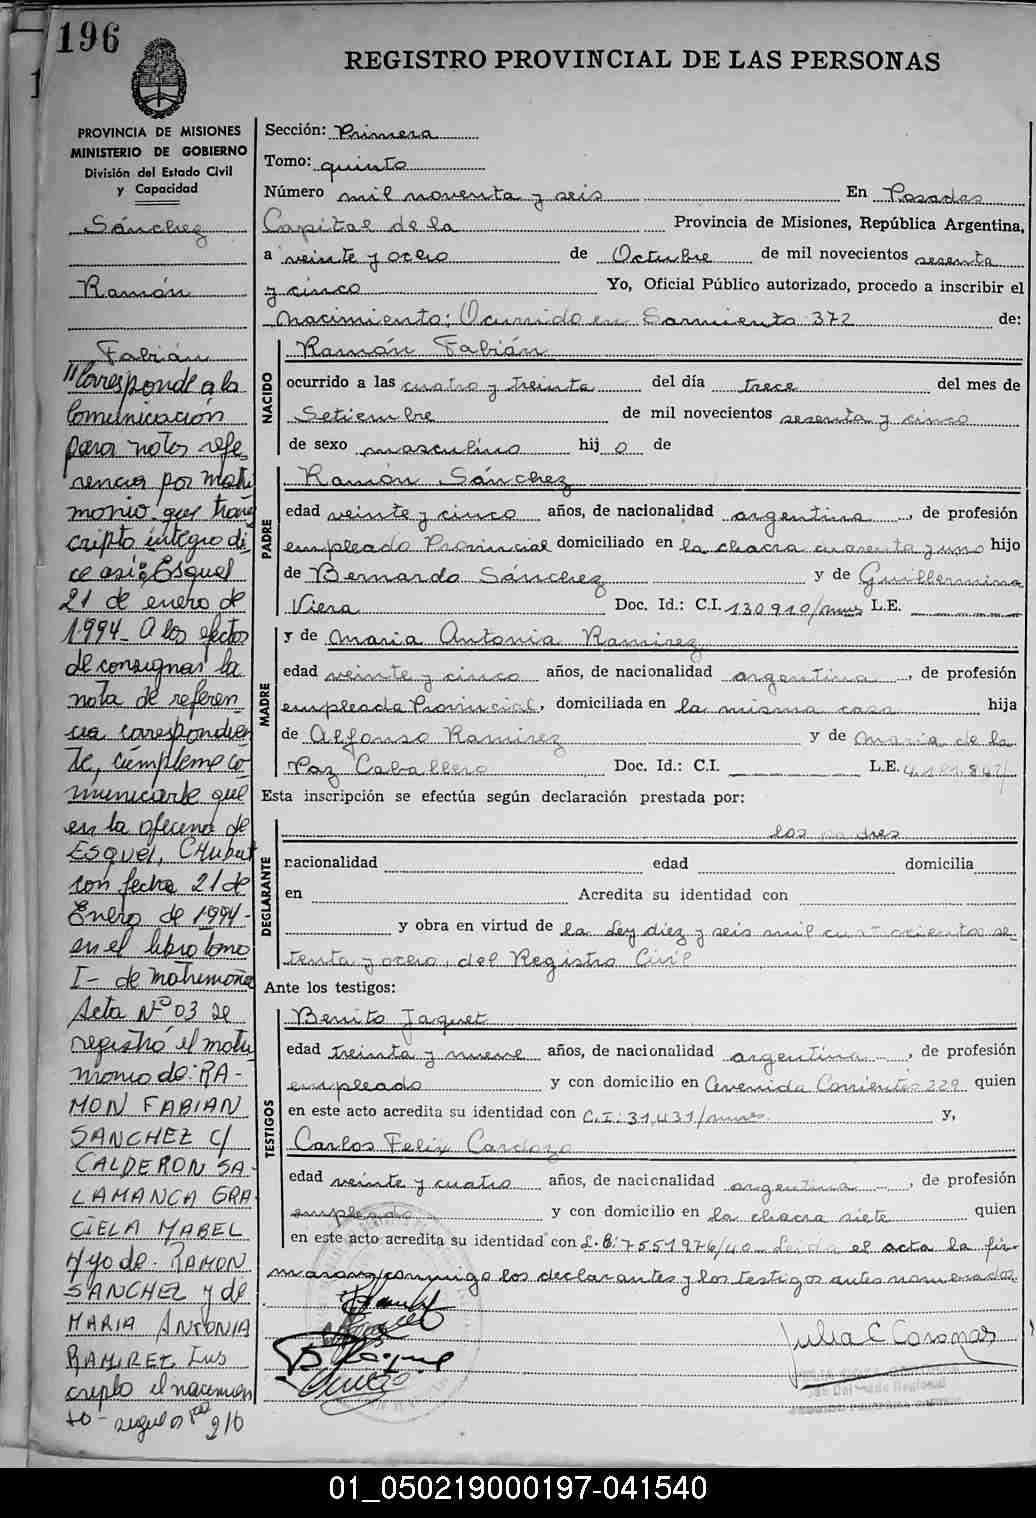 196
REGISTRO PROVINCIAL DE LAS PERSONAS
PROVINCIA DE MISIONES
MINISTERIO DE GOBIERNO
División del Estado Civil
y Capacidad
Sánchez
Ramón
Fabián
"Corresponde a la
Comunicación
para notas refe
rencia por matri
monio que trans
cripto íntegro di
ce así: Esquel
21 de enero de
1.994- A los efectos
de consignar la
nota de referen
cia correspondien
te, cúmpleme co
municarle que
en la oficina de
Esquel, Chubut
con fecha 21 de
Enero de 1994-
en el libro tomo
I- de matrimonios
Acta Nº 03 se
registró el matri
monio de: RA-
MON FABIAN
SANCHEZ c/
CALDERON SA-
LAMANCA GRA
CIELA MABEL
Hijo de RAMON
SANCHEZ y de
MARIA ANTONIA
RAMIREZ Ins
cripto el nacimien
to
Sección: Primera
Tomo: quinto
Número mil noventa y seis En Posadas
Capital de la Provincia de Misiones, República Argentina,
a veinte y ocho de Octubre de mil novecientos sesenta
y cinco Yo, Oficial Público autorizado, procedo a inscribir el
Nacimiento: Ocurrido en Sarmiento 372 de:
NACIDO
Ramón Fabián
ocurrido a las cuatro y treinta del día trece del mes de
Setiembre de mil novecientos sesenta y cinco
de sexo masculino hij o de
PADRE
Ramón Sánchez
edad veinte y cinco años, de nacionalidad argentina, de profesión
empleado Provincial domiciliado en la chacra cuarenta y uno hijo
de Bernardo Sánchez y de Guillermina
Viera Doc. Id.: C.I. 130910/mnes L.E.
MADRE
y de Maria Antonia Ramirez
edad veinte y cinco años, de nacionalidad argentina, de profesión
empleada Provincial, domiciliada en la misma casa hija
de Alfonso Ramirez y de María de la
Paz Caballero Doc. Id.: C.I. L.E.
Esta inscripción se efectúa según declaración prestada por:
DECLARANTE
los padres
nacionalidad edad domicilia
en Acredita su identidad con
y obra en virtud de la Ley diez y seis mil cuatrocientos se-
tenta y ocho, del Registro Civil
Ante los testigos:
TESTIGOS
Benito Jaquet
edad treinta y nueve años, de nacionalidad argentina, de profesión
empleado y con domicilio en Avenida Corrientes 229 quien
en este acto acredita su identidad con C.I: 31.431/mnes. y,
Carlos Felix Cardozo
edad veinte y cuatro años, de nacionalidad argentina, de profesión
empleado y con domicilio en la chacra siete quien
en este acto acredita su identidad con L.E: 7551976/40 Leida el acta la fir-
maron conmigo los declarantes y los testigos antes nombrados.
Julia C Coronas
01_050219000197-041540